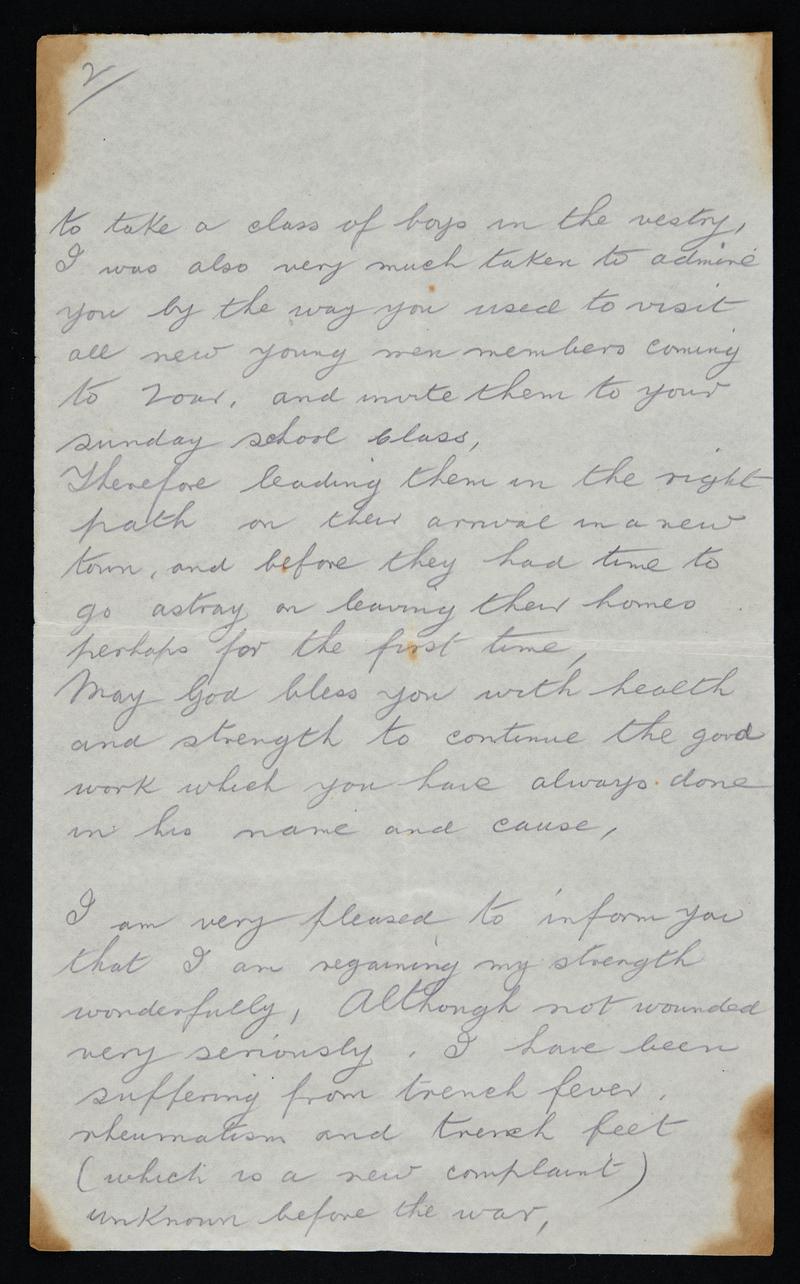 2/
to take a class of boys in the vestry,
I was also very much taken to admire
you by the way you used to visit
all new young men members coming
to Zoar, and invite them to your
sunday school class,
Therefore leading them in the right
path on their arrival in a new
town, and before they had time to
go astray on leaving their homes
perhaps for the first time,
May God bless you with health
and strength to continue the good
work which you have always done
in his name and cause,
I am very pleased to inform you
that I am regaining my strength
wonderfully, Although not wounded
very seriously. I have been
suffering from trench fever,
rheumatism and trench feet
(which is a new complaint)
unknown before the war,